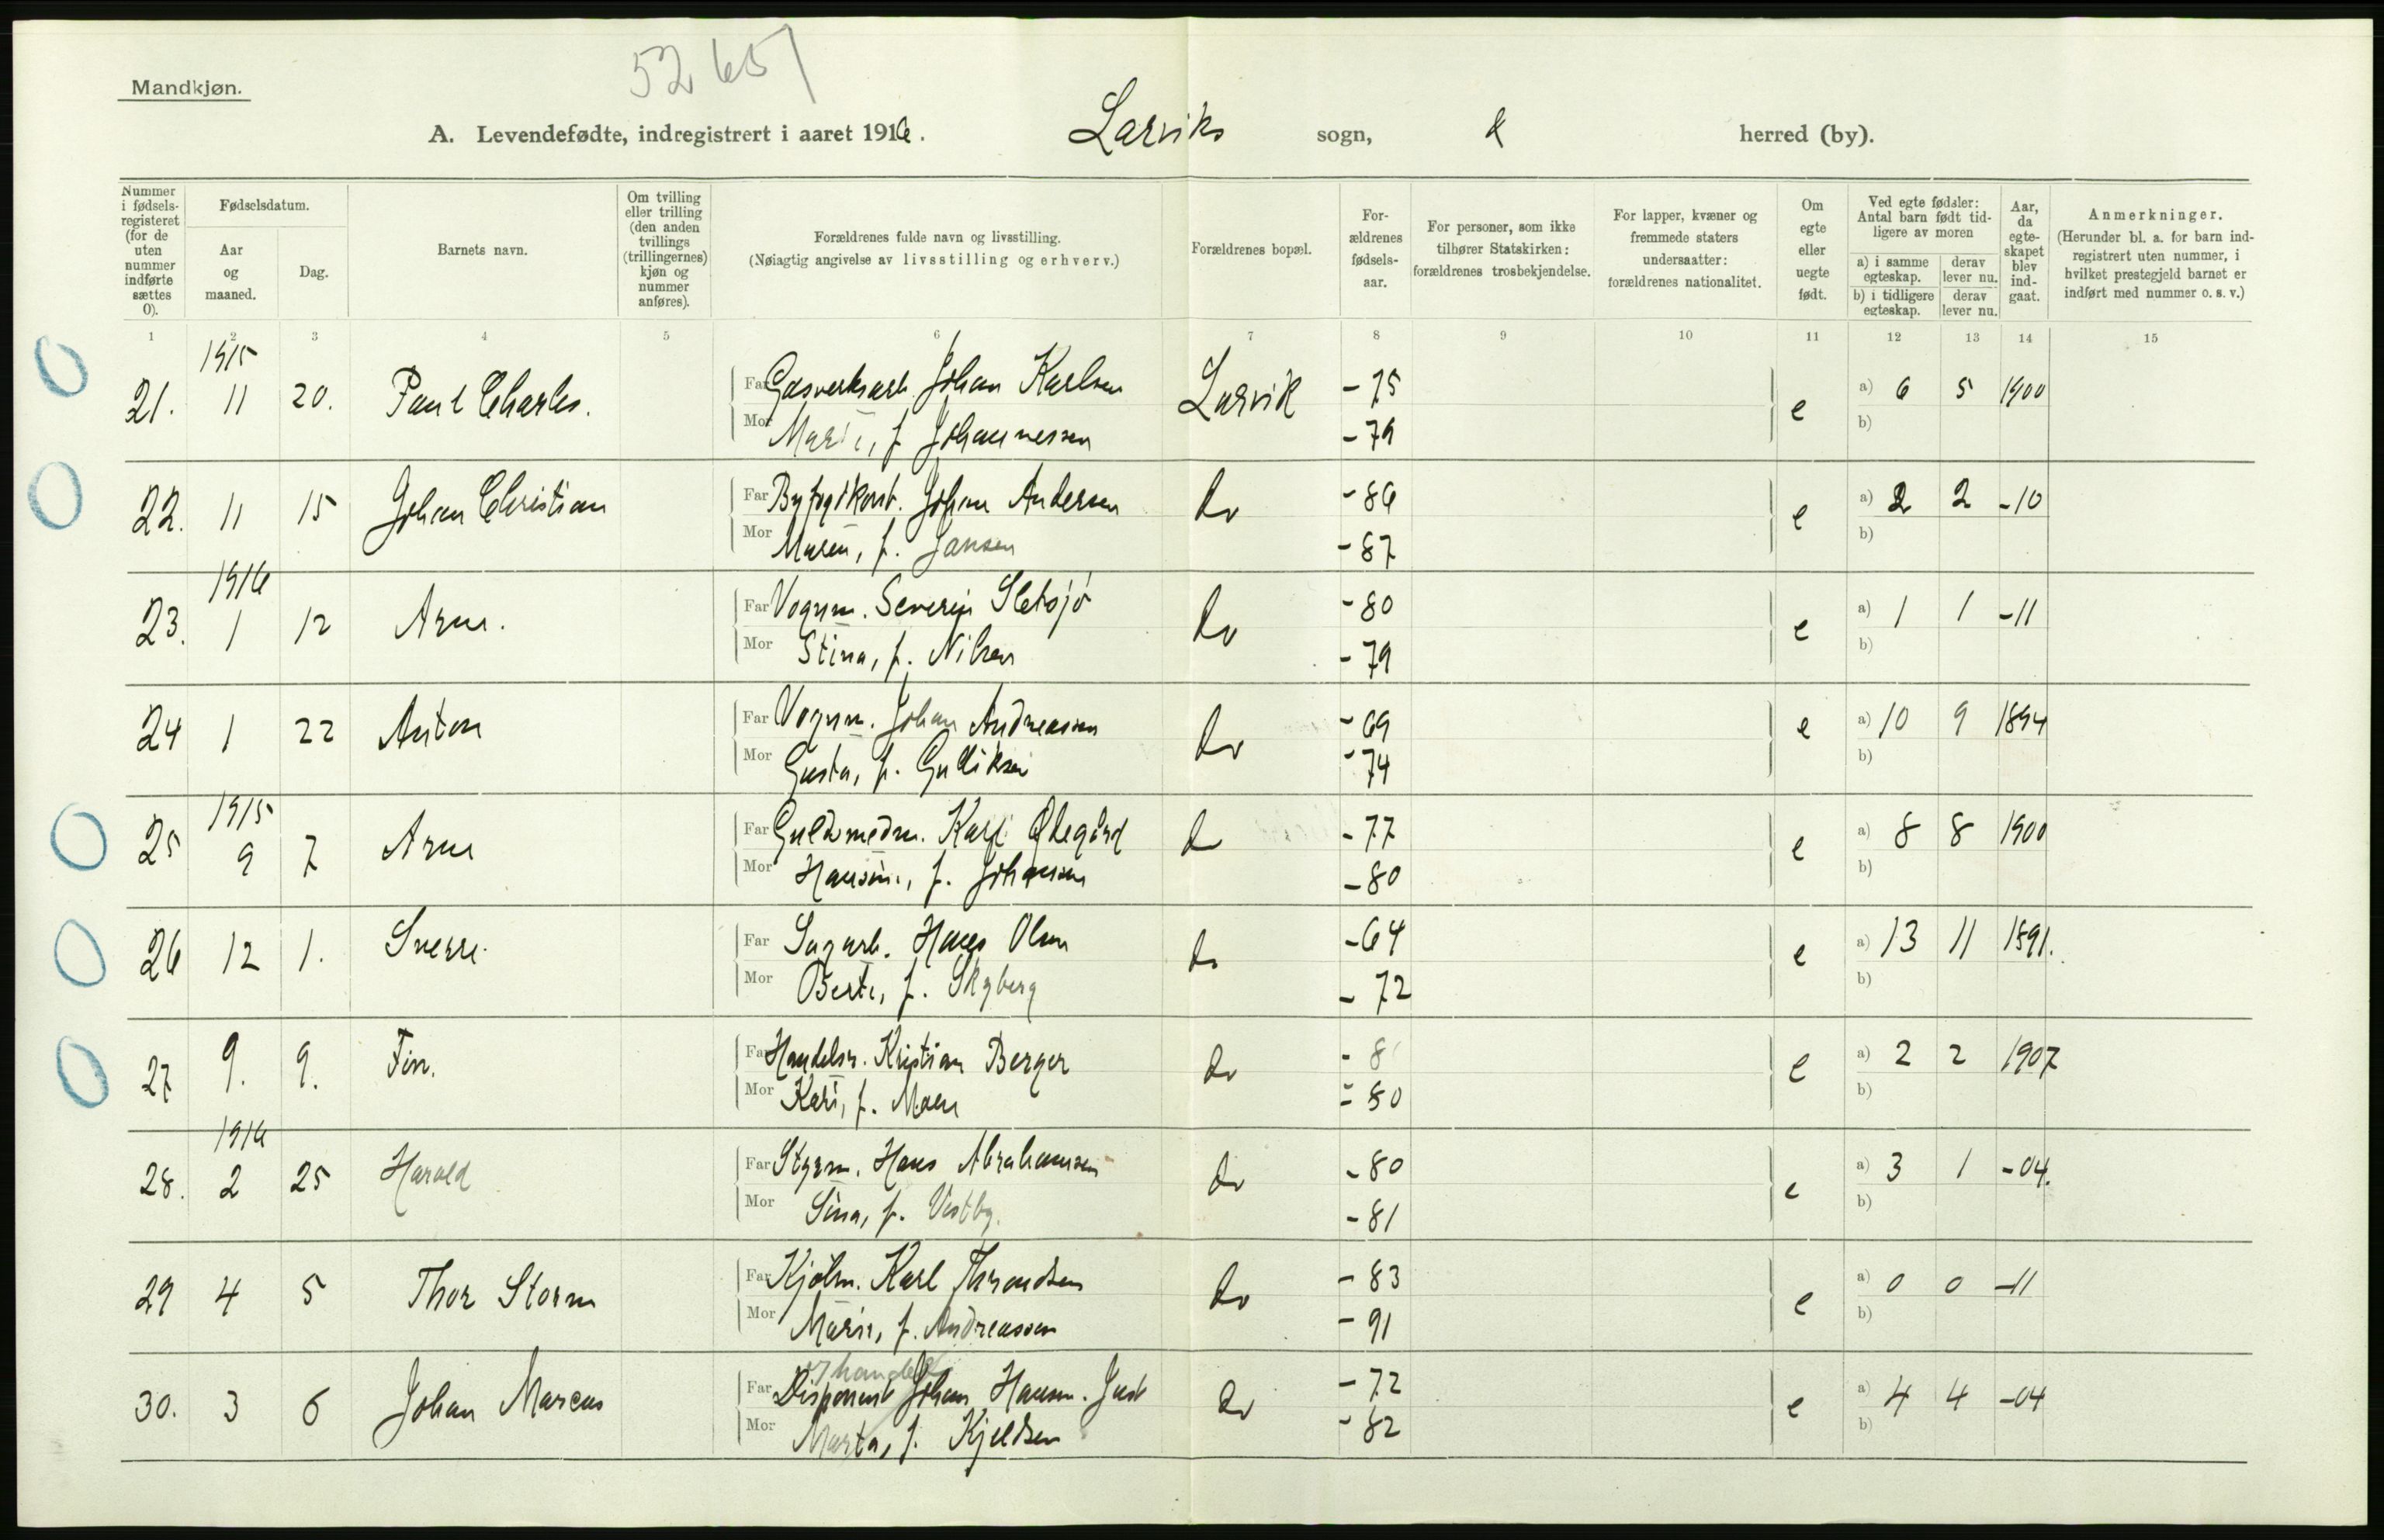 52657
Mandkjøn.
A. Levendefødte, indregistrert i aaret 1916. Larviks sogn, herred (by).
Nummer i fødsels-registeret (for de uten nummer indførte sættes 0).
Fødselsdatum.
Aar og maaned.
Dag.
Barnets navn.
Om tvilling eller trilling (den anden tvillings (trillingernes) kjøn og nummer anføres).
Forældrenes fulde navn og livsstilling.
(Nøiagtig angivelse av livsstilling og erhverv.)
Forældrenes bopæl.
For-ældrenes fødsels-aar.
For personer, som ikke tilhører Statskirken: forældrenes trosbekjendelse.
For lapper, kvæner og fremmede staters undersaatter: forældrenes nationalitet.
Om egte eller uegte født.
Ved egte fødsler: Antal barn født tid-ligere av moren
a) i samme egteskap. derav lever nu.
b) i tidligere egteskap. derav lever nu.
Aar, da egte-skapet blev ind-gaat.
Anmerkninger.
(Herunder bl. a. for barn ind-registrert uten nummer, i hvilket prestegjeld barnet er indført med nummer o. s. v.)
1 2 3 4 5 6 7 8 9 10 11 12 13 14 15
1915
21. 11 20. Paul Charles. Far Gasverksarb. Johan Karlsen Larvik -75 e a) 6 5 1900
Mor Marie, f. Johannessen -79 b)
22. 11 15 Johan Christian Far Johan Andersen do -86 e a) 2 2 -10
Mor Maren, f. Jansen -87 b)
1916
23. 1 12 Arne. Far Vognm. Severin Sletsjø do -80 e a) 1 1 -11
Mor Stina, f. Nilsen -79 b)
24 1 22 Anton Far Vognm. Johan Andreassen do -69 e a) 10 9 1894
Mor Gusta, f. Gulliksen -74 b)
1915
25 9 7 Arne Far Guldsmedm. Karl Ødegård do -77 e a) 8 8 1900
Mor Hansine, f. Johansen -80 b)
26 12 1. Sverre. Far Sagarb. Hans Olsen do -64 e a) 13 11 1891.
Mor Berte, f. Skyberg -72 b)
27 9. 9. Finn. Far Handelsr. Kristian Berger do -8 e a) 2 2 1907
Mor Kari, f. Moen -80 b)
1916
28. 2 25 Harald Far Styrm. Hans Abrahamsen do -80 e a) 3 1 -04.
Mor Sina, f. Vestby. -81 b)
29 4 5 Thor Storm Far Kjølm. Karl Throndsen do -83 e a) 0 0 -11
Mor Marie, f. Andreassen -91 b)
handel
30. 3 6 Johan Marcus Far Disponent Johan Hansen. Just do -72 e a) 4 4 -04
Mor Marta, f. Kjeldsen -82 b)